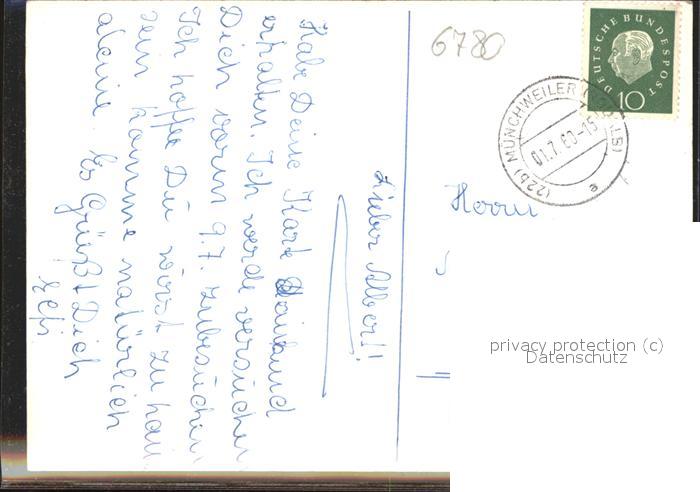 Lieber Albert!
Habe Deine Karte dankend
erhalten. Ich werde versuchen
Dich vorm 9.7. zubesuchen.
Ich hoffe Du wirst zu hau
sein komme natürlich
alleine. Es Grüßt Dich
6780
DEUTSCHE BUNDESPOST
10
(22b) MÜNCHWEILER
01.7.60-15
a
Herrn
privacy protection (c)
Datenschutz